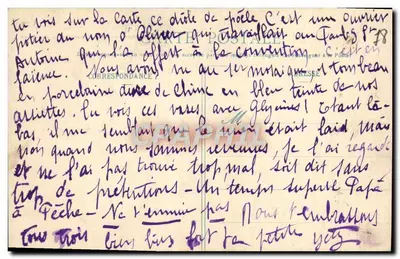 tu vois sur la Carte ce drôle de poêle C'est un ouvrier
potier du nom d'Olivier qui travaillait au Faubg St
Antoine qui l'a offert à la convention. C'est en
faïence. Nous avons vu au
en porcelaine de Chine en bleu teinte de nos
assiettes. Tu vois ces vases avec glycines! étant là-
bas, il me semblait que le nôtre était laid, mais
non quand nous sommes revenues, je l'ai regardé
et ne l'ai pas trouvé trop mal, soit dit sans
trop de prétentions - Un temps superbe Papa
à Pêche - Ne t'ennuie pas Nous t'embrassons
tous trois bien bien fort Ta petite
CARTE POSTALE
CORRESPONDANCE